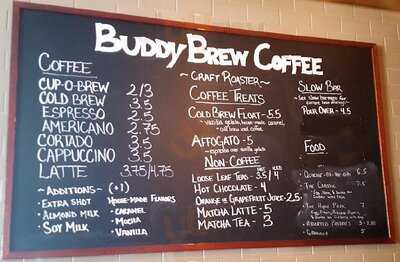 BUDDY BREW COFFEE
~CRAFT ROASTER~
COFFEE
CUP-O-BREW 2/3
COLD BREW 3.5
ESPRESSO 2.5
AMERICANO 2.75
CORTADO 3.5
CAPPUCCINO 3.5
LATTE 3.75/4.75
~ADDITIONS~ (+1)
EXTRA SHOT
ALMOND MILK
SOY MILK
HOUSE-MADE FLAVORS
CARAMEL
MOCHA
VANILLA
COFFEE TREATS
COLD BREW FLOAT - 5.5
vanilla gelato, house-made caramel,
cold brew
AFFOGATO - 5
espresso over vanilla gelato
NON-COFFEE
LOOSE LEAF TEAS - 3.5/4
HOT CHOCOLATE - 4
ORANGE OR GRAPEFRUIT JUICE - 2.5
MATCHA LATTE - 5
MATCHA TEA - 3
SLOW BAR
POUR OVER - 4.5
FOOD
6.5
THE CLASSIC 7.5
7